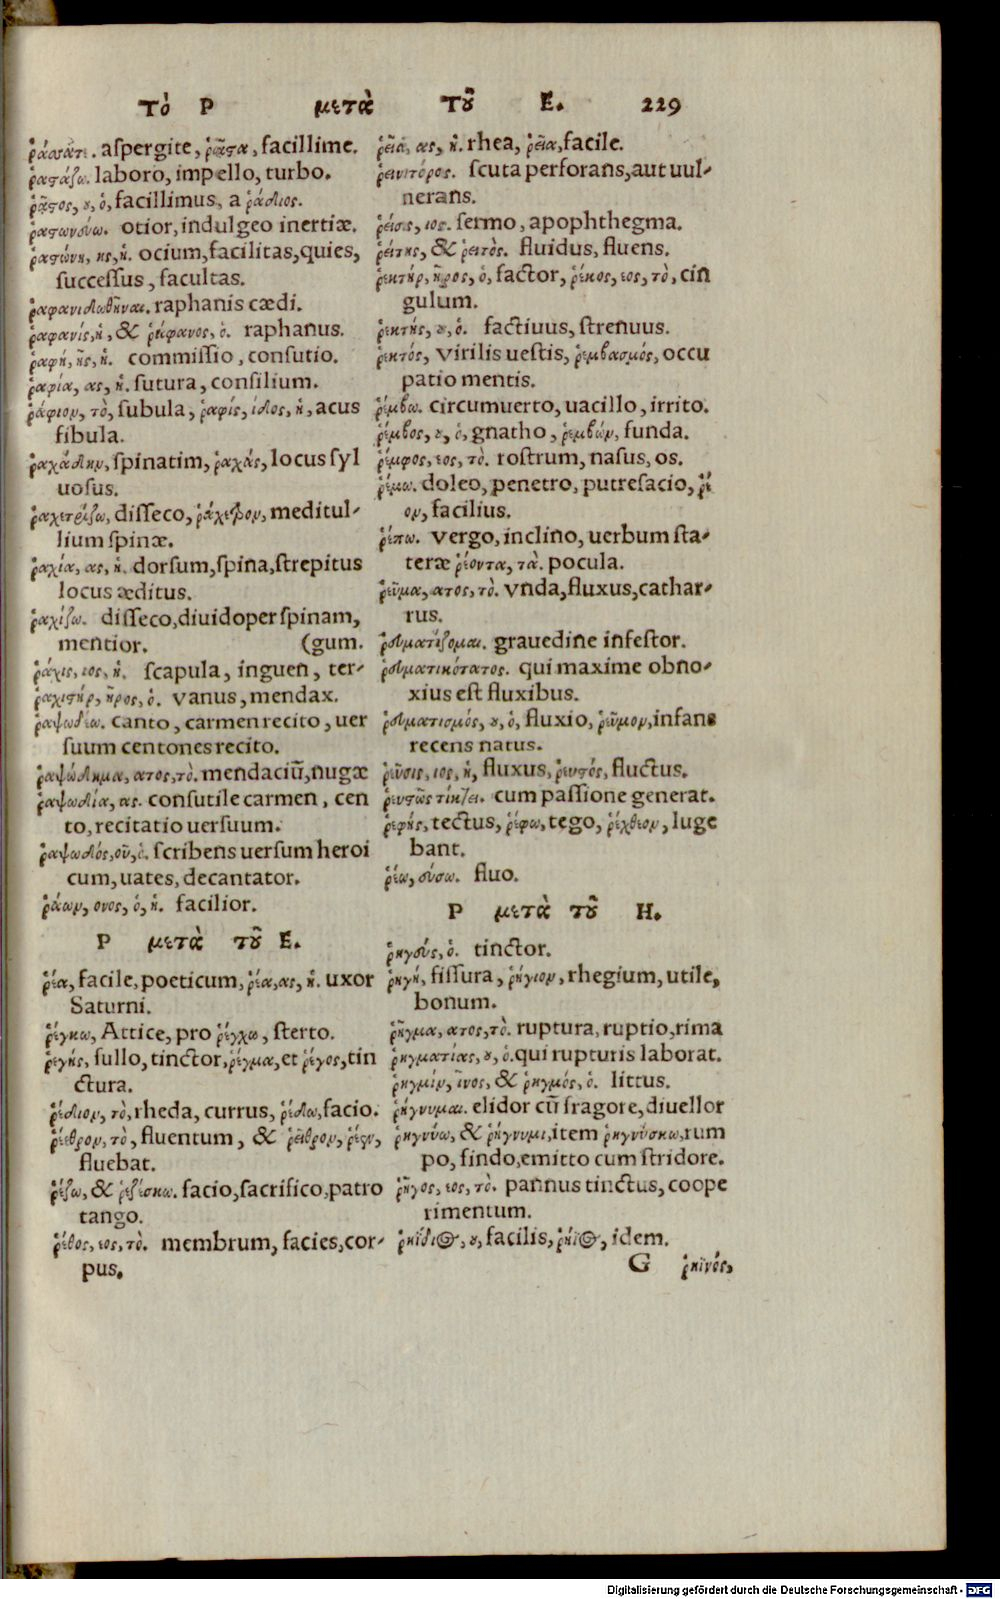 Τὸ Ρ μετὰ Τοῦ Ε. 229
ῥάσατε. aspergite, ῥᾷστα, facillime.
ῥαστάζω. laboro, impello, turbo.
ῥᾷστος, ου, ὁ, facillimus, a ῥάδιος.
ῥαστωνεύω. otior, indulgeo inertiæ.
ῥαστώνη, ης, ἡ. ocium, facilitas, quies,
successus, facultas.
ῥαφανιδωθῆναι. raphanis cædi.
ῥαφανίς, ἡ, & ῥάφανος, ὁ. raphanus.
ῥαφή, ῆς, ἡ. commissio, consutio.
ῥαφία, ας, ἡ. sutura, consilium.
ῥάφιον, τὸ, subula, ῥαφίς, ίδος, ἡ, acus
fibula.
ῥαχάδην, spinatim, ῥαχάς, locus syl
uosus.
ῥαχετρίζω, disseco, ῥάχετρον, meditul-
lium spinæ.
ῥαχία, ας, ἡ. dorsum, spina, strepitus
locus æditus.
ῥαχίζω. disseco, diuido per spinam,
mentior. (gum.
ῥάχις, ιος, ἡ. scapula, inguen, ter-
ῥαχιστήρ, ῆρος, ὁ. vanus, mendax.
ῥαψωδέω. canto, carmen recito, uer
suum centones recito.
ῥαψώδημα, ατος, τὸ. mendaciū, nugæ
ῥαψωδία, ας. consutile carmen, cen
to, recitatio uersuum.
ῥαψωδός, οῦ, ὁ. scribens uersum heroi
cum, uates, decantator.
ῥάων, ονος, ὁ, ἡ. facilior.
Ρ μετὰ τοῦ Ε.
ῥέα, facile, poeticum, ῥέα, ας, ἡ. uxor
Saturni.
ῥέγκω, Attice, pro ῥέγχω, sterto.
ῥεγής, fullo, tinctor, ῥέγμα, et ῥέγος, tin
ctura.
ῥέδιον, τὸ, rheda, currus, ῥέδω, facio.
ῥέεθρον, τὸ, fluentum, & ῥεῖθρον, ῥέεν,
fluebat.
ῥέζω, & ῥεζέσκω. facio, sacrifico, patro
tango.
ῥέθος, εος, τὸ. membrum, facies, cor-
pus.
ῥεῖά, ας, ἡ. rhea, ῥεῖα, facile.
ῥεινιτόρος. scuta perforans, aut uul-
nerans.
ῥεῖσις, ιος. sermo, apophthegma.
ῥείτης, & ῥειτὸς. fluidus, fluens.
ῥεκτήρ, ῆρος, ὁ, factor, ῥέκος, εος, τὸ, cin
gulum.
ῥεκτής, ου, ὁ. factiuus, strenuus.
ῥεκτός, virilis uestis, ῥεμβασμός, occu
patio mentis.
ῥέμβω. circumuerto, uacillo, irrito.
ῥέμβος, ου, ὁ, gnatho, ῥεμβών, funda.
ῥέμφος, εος, τὸ. rostrum, nasus, os.
ῥέμω. doleo, penetro, putrefacio, ῥέ
ον, facilius.
ῥέπω. vergo, inclino, uerbum sta-
teræ ῥέοντα, τὰ. pocula.
ῥεῦμα, ατος, τὸ. vnda, fluxus, cathar-
rus.
ῥευματίζομαι. grauedine infestor.
ῥευματικότατος. qui maxime obno-
xius est fluxibus.
ῥευματισμός, ου, ὁ, fluxio, ῥεῦμον, infans
recens natus.
ῥεῦσις, ιος, ἡ, fluxus, ῥευστός, fluctus.
ῥευστῶς τίκτει. cum passione generat.
ῥεφής, tectus, ῥέφω, tego, ῥέχθεον, luge
bant.
ῥέω, εύσω. fluo.
Ρ μετὰ τοῦ Η.
ῥηγεύς, ὁ. tinctor.
ῥηγή, fissura, ῥήγιον, rhegium, utile,
bonum.
ῥῆγμα, ατος, τὸ. ruptura, ruptio, rima
ῥηγματίας, ου, ὁ. qui rupturis laborat.
ῥηγμίν, ῖνος, & ῥηγμός, ὁ. littus.
ῥήγνυμαι. elidor cū fragore, diuellor
ῥηγνύω, & ῥήγνυμι, item ῥηγνύσκω, rum
po, findo, emitto cum stridore.
ῥῆγος, εος, τὸ. pannus tinctus, coope
rimentum.
ῥηΐδιος, ου, facilis, ῥήϊος, idem.
G ῥηϊνός,
Digitalisierung gefördert durch die Deutsche Forschungsgemeinschaft - DFG